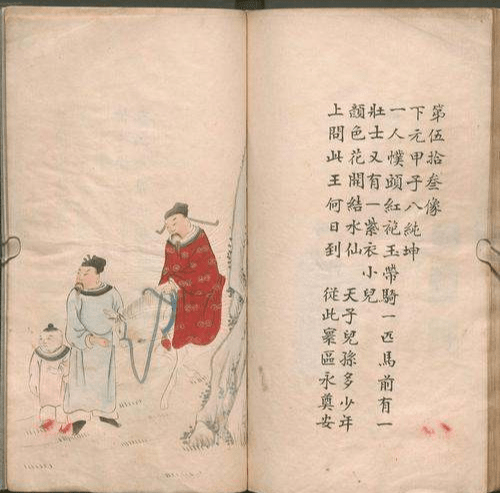 第伍拾叁像
下元甲子八純坤
一人幞頭紅袍玉帶騎一匹馬前有一
壯士又有一紫衣小兒
顏色花開結水仙 天子兒孫多少年
上問此王何日到 從此寰區永奠安